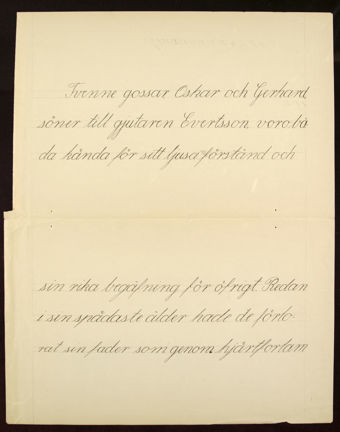 Tvenne gossar Oskar och Gerhard
söner till gjutaren Evertsson, voro bå
da kända för sitt ljusa förstånd och
sin rika begåfning för öfrigt. Redan
i sen spädaste ålder hade de förlo-
rat sin fader som genom hjärtförlam